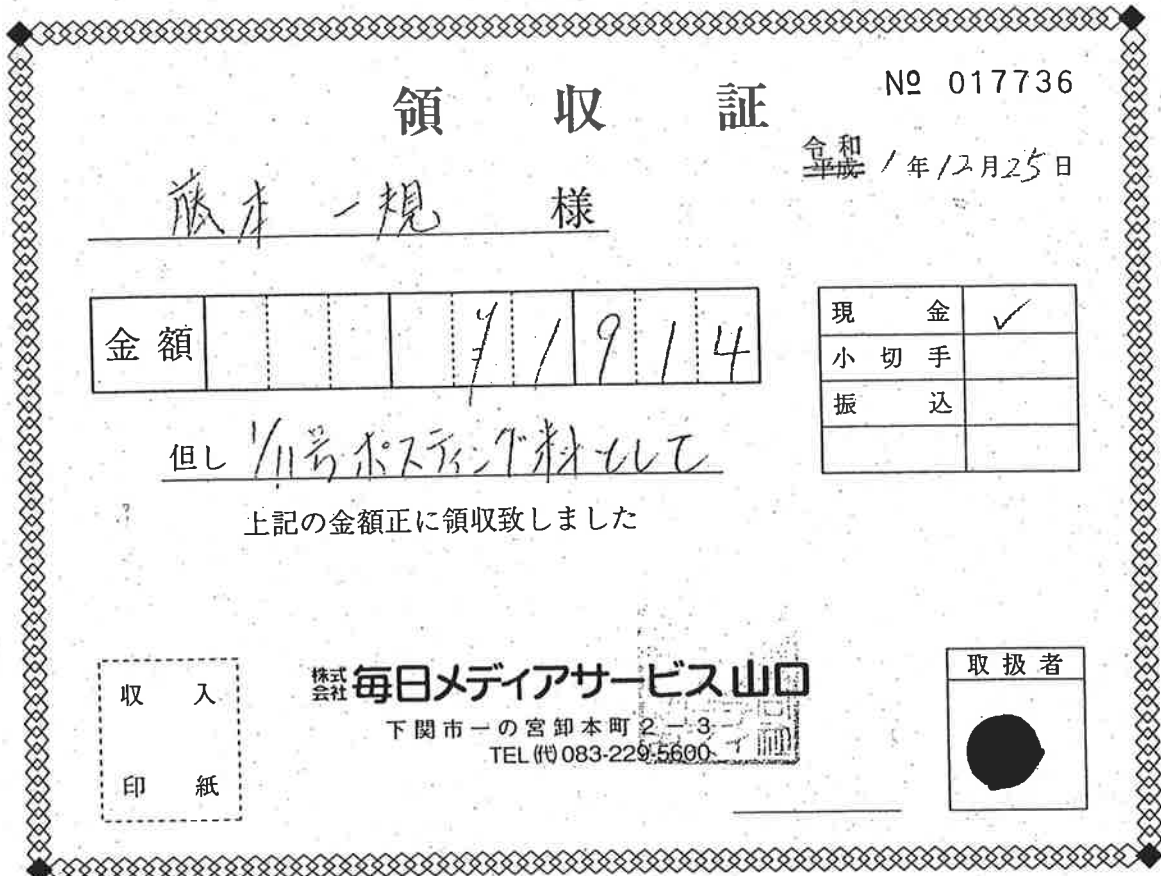 領収証
№ 017736
令和
平成 1年12月25日
藤本 一規 様
金額 ¥1914
現金 ✓
小切手
振込
但し 1/11号ポスティング料として
上記の金額正に領収致しました
収入
印紙
株式会社 毎日メディアサービス山口
下関市一の宮卸本町2-3
TEL(代)083-229-5600
取扱者